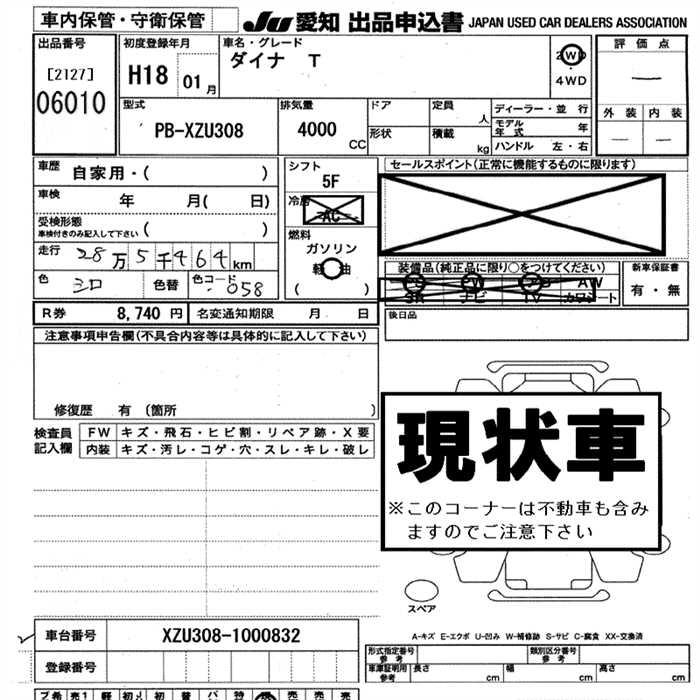 車内保管・守衛保管 JU 愛知 出品申込書 JAPAN USED CAR DEALERS ASSOCIATION
出品番号
[2127]
06010
初度登録年月
H18 01 月
車名・グレード
ダイナ T
2WD
・
4WD
評価点
—
外装 内装
— —
型式
PB-XZU308
排気量
4000 CC
ドア
形状
定員 人
積載 kg
ディーラー・並行
モデル年式 年
ハンドル 左・右
車歴 自家用・( )
車検 年 月( 日)
受検形態
車検付きのみ記入して下さい ( )
走行 28万5千464 km
色 シロ 色替 色コード 058
シフト
5F
冷房
AC
燃料
ガソリン
軽油
( )
セールスポイント(正常に機能するものに限ります)
装備品(純正品に限り○をつけてください)
PS PW AW
SR ナビ TV カワシート
新車保証書
有・無
後日品
R券 8,740 円 名変通知期限 月 日
注意事項申告欄(不具合内容等は具体的に記入して下さい)
修復歴 有 〔箇所 〕
検査員
記入欄
FW キズ・飛石・ヒビ割・リペア跡・X要
内装 キズ・汚レ・コゲ・穴・スレ・キレ・破レ
現状車
※このコーナーは不動車も含み
ますのでご注意下さい
スペア
A-キズ E-エクボ U-凹み W-補修跡 S-サビ C-腐食 XX-交換済
車台番号 XZU308-1000832
登録番号
形式指定番号
参考
類別区分番号
参考
車庫証明用
参考
長さ cm 幅 cm 高さ cm